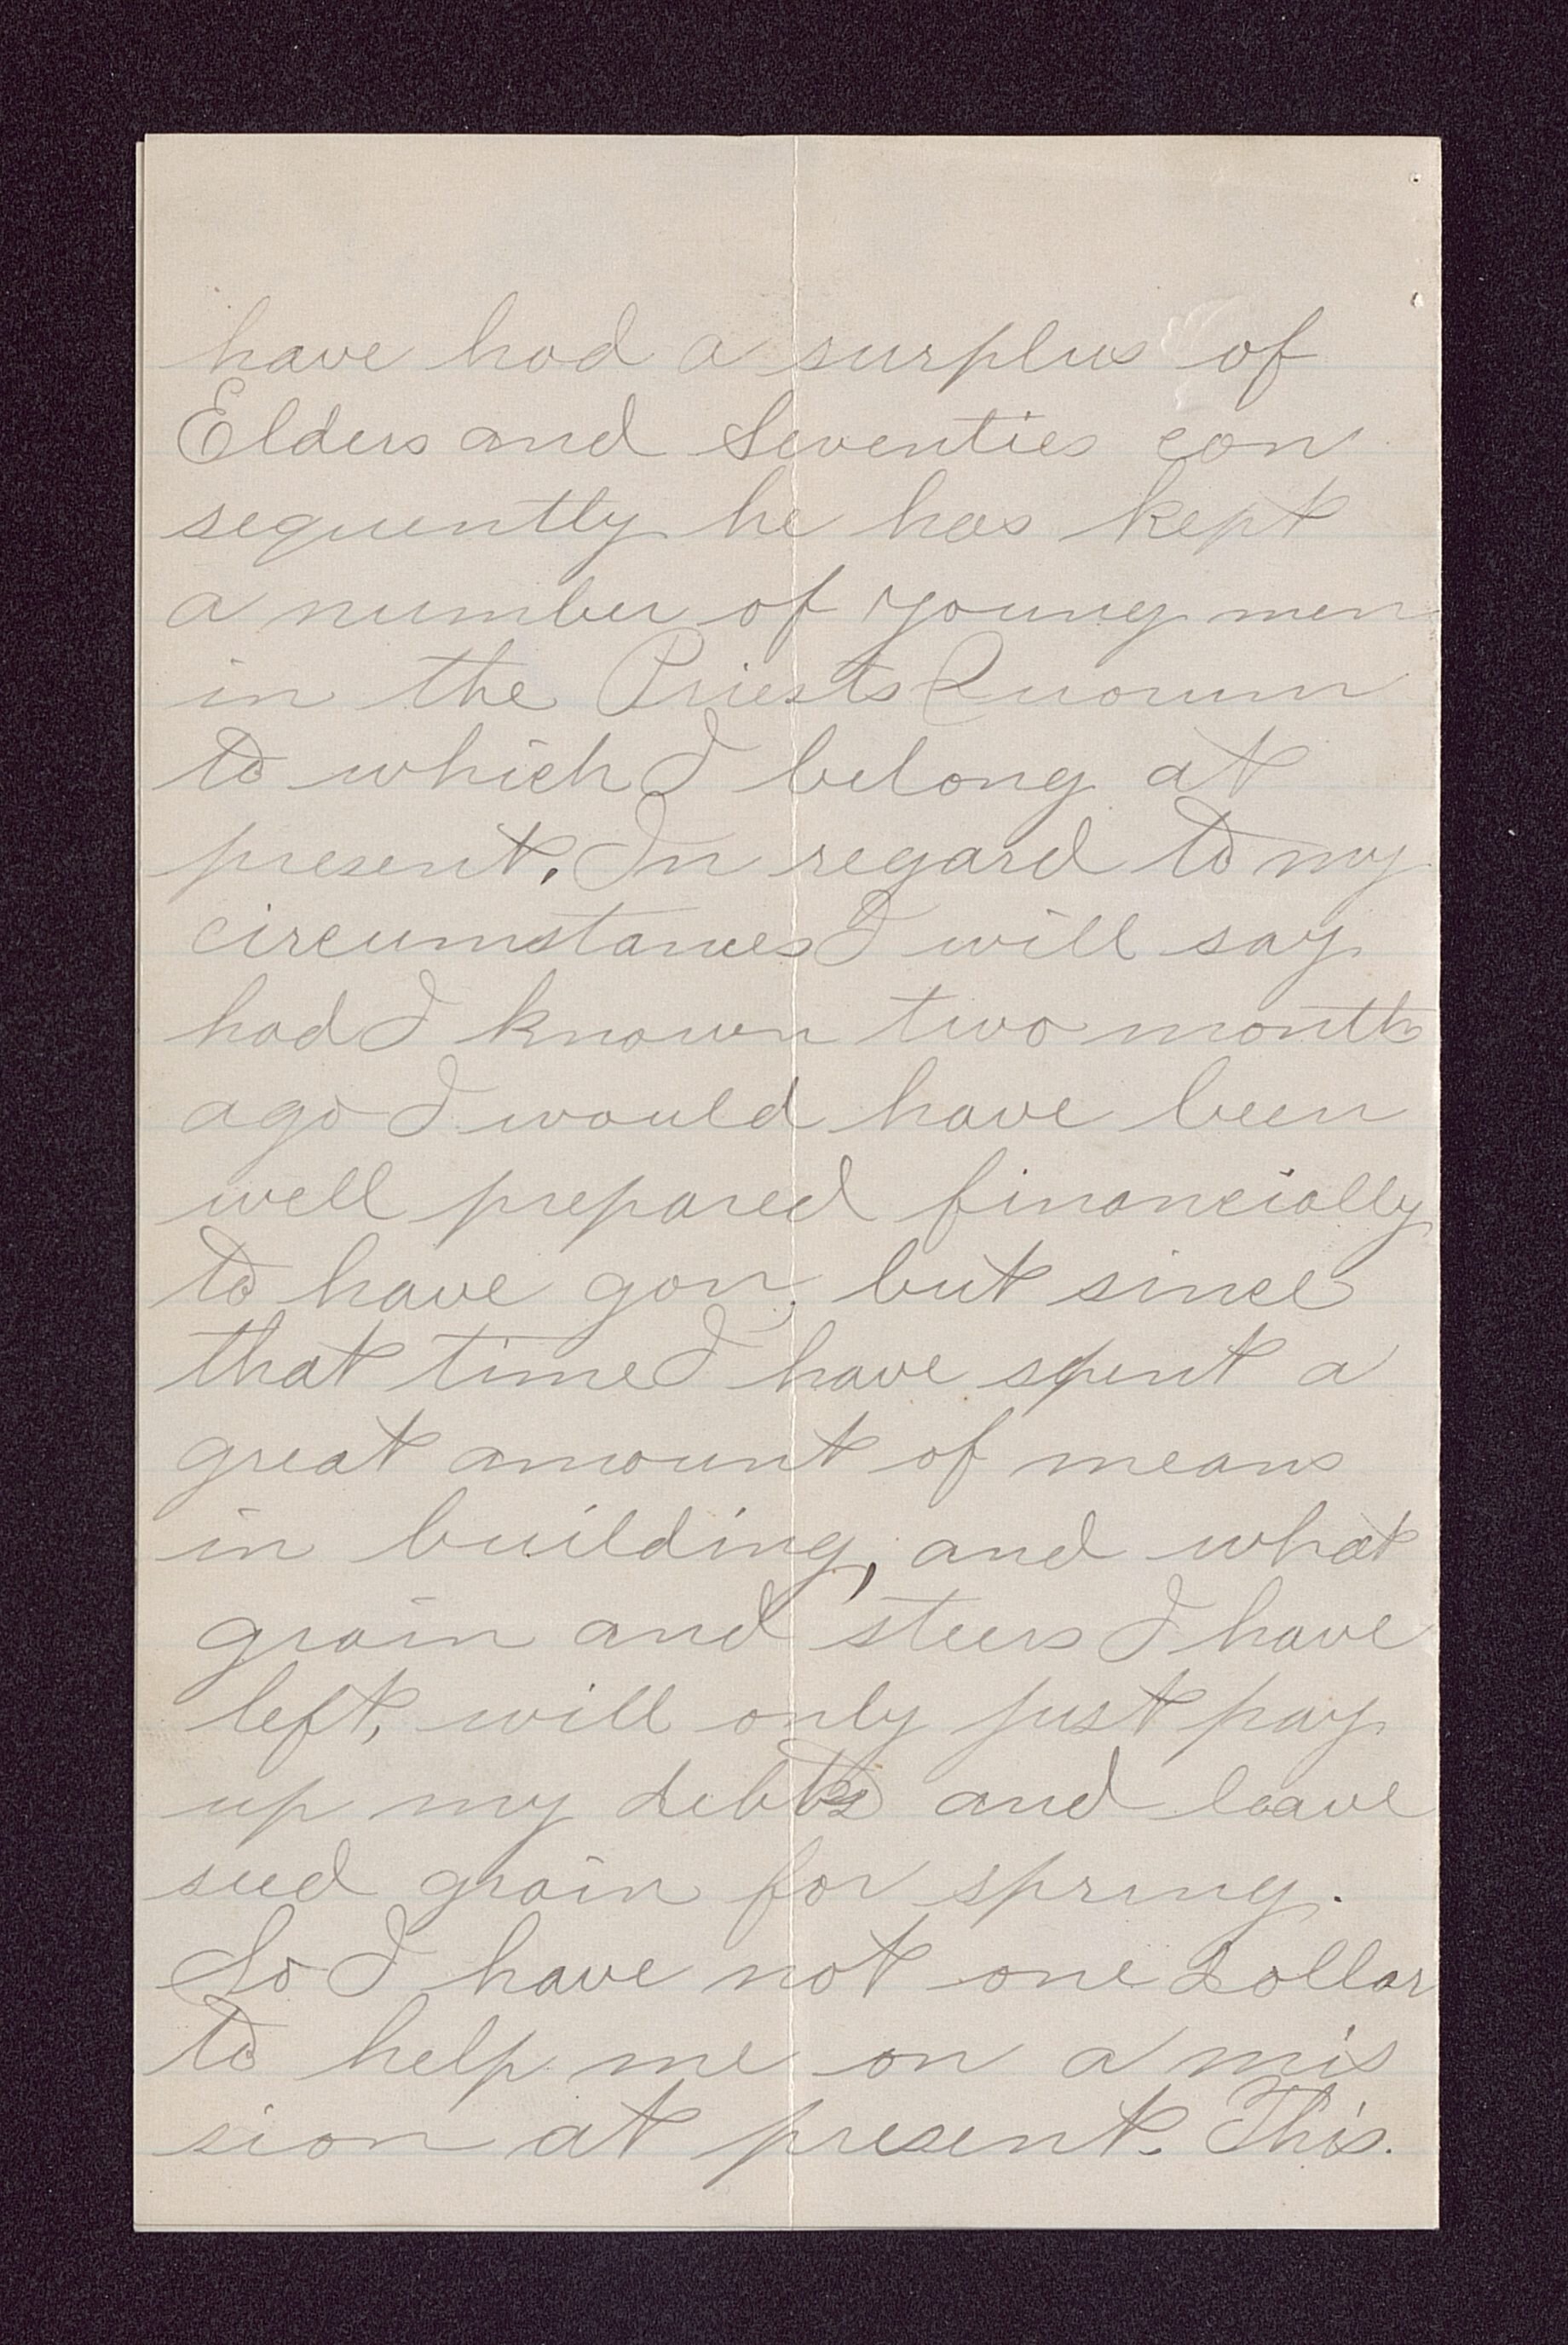 have had a surplus of
Elders and Seventies con
sequently he has kept
a number of young men
in the Priests Quorum
to which I belong at
present. In regard to my
circumstances I will say
had I known two month
ago I would have been
well prepared financially
to have gon, but since
that time I have spent a
great amount of means
in building, and what
grain and steers I have
left, will only just pay
up my debts and leave
seed grain for spring.
So I have not one dollar
to help me on a mis
sion at present. This.